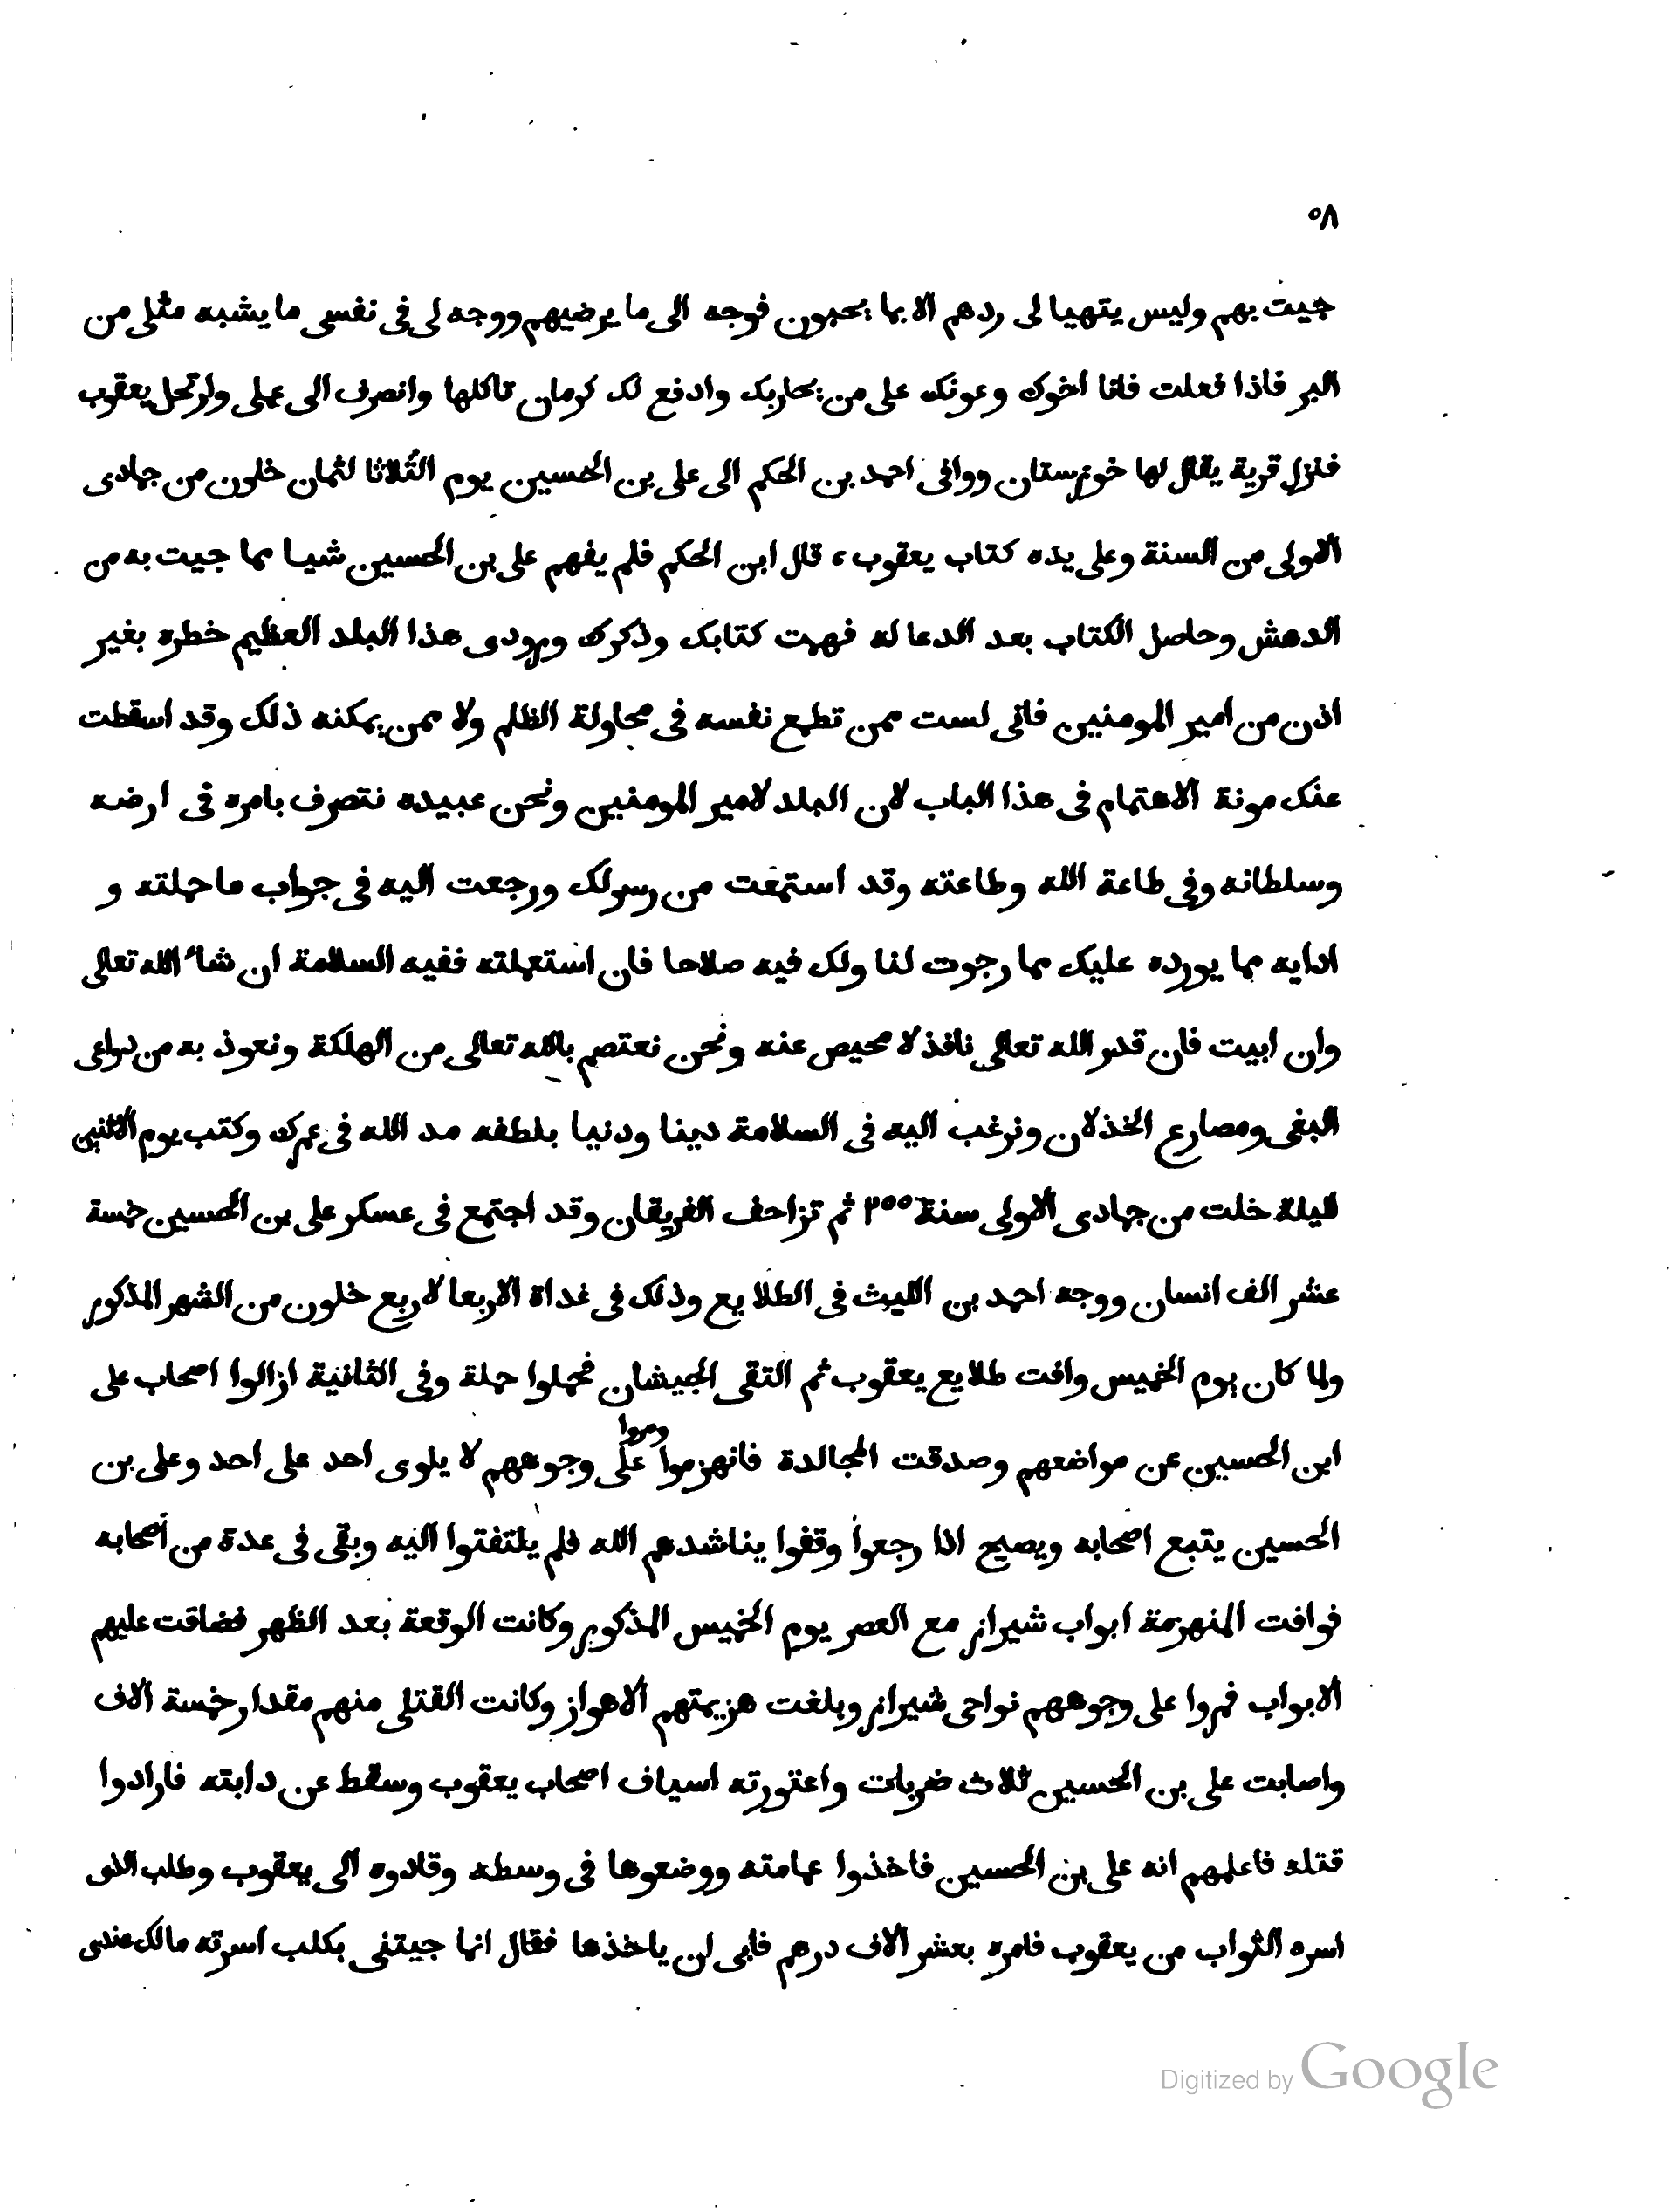 ٥٨
جيت بهم وليس يتهيا لى ردهم الا بما يحبون فوجه الى ما يرضيهم ووجه لى فى نفسى ما يشبه مثلى من
البر فاذا فعلت فانا اخوك وعونك على من يحاربك وادفع لك كرمان تاكلها وانصرف الى عملى وارتحل يعقوب
فنزل قرية يقال لها خوزستان ووافى احمد بن الحكم الى على بن الحسين يوم الثلاثا لثمان خلون من جمادى
الاولى من السنة وعلى يده كتاب يعقوب، قال ابن الحكم فلم يفهم على بن الحسين شيا مما جيت به من
الدهش وحاصل الكتاب بعد الدعا له فهمت كتابك وذكرك ورودى هذا البلد العظيم خطره بغير
اذن من امير المومنين فانى لست ممن تطمع نفسه فى محاولة الظلم ولا ممن يمكنه ذلك وقد اسقطت
عنك مونة الاهتمام فى هذا الباب لان البلد لامير المومنين ونحن عبيده نتصرف بامره فى ارضه
وسلطانه وفى طاعة الله وطاعته وقد استمعت من رسولك ورجعت اليه فى جواب ما حملته و
ادايه مما يورده عليك مما رجوت لنا ولك فيه صلاحا فان استعملته ففيه السلامة ان شاء الله تعالى
وان ابيت فان قدر الله تعالى نافذ لا محيص عنه ونحن نعتصم بالله تعالى من الهلكة ونعوذ به من دواعى
البغى ومصارع الخذلان ونرغب اليه فى السلامة دينا ودنيا بلطفه مد الله فى عمرك وكتب يوم الاثنين
لليلة خلت من جمادى الاولى سنة ٢٥٥ ثم تزاحف الفريقان وقد اجتمع فى عسكر على بن الحسين خمسة
عشر الف انسان ووجه احمد بن الليث فى الطلايع وذلك فى غداة الاربعا لاربع خلون من الشهر المذكور
ولما كان يوم الخميس وافت طلايع يعقوب ثم التقى الجيشان فحملوا حملة وفى الثانية ازالوا اصحاب على
ابن الحسين عن مواضعهم وصدقت المجالدة فانهزموا ومروا على وجوههم لا يلوى احد على احد وعلى بن
الحسين يتبع اصحابه ويصيح الا رجعوا وقفوا يناشدهم الله فلم يلتفتوا اليه وبقى فى عدة من أصحابه
فوافت المنهزمة ابواب شيراز مع العصر يوم الخميس المذكور وكانت الوقعة بعد الظهر فضاقت عليهم
الابواب فمروا على وجوههم نواحى شيراز وبلغت هزيمتهم الاهواز وكانت القتلى منهم مقدار خمسة الاف
واصابت على بن الحسين ثلاث ضربات واعتورته اسياف اصحاب يعقوب وسقط عن دابته فارادوا
قتله فاعلمهم انه على بن الحسين فاخذوا عمامته ووضعوها فى وسطه وقادوه الى يعقوب وطلب الذى
اسره الثواب من يعقوب فامره بعشر الاف درهم فابى ان ياخذها فقال انما جيتنى بكلب اسرته مالك عندى
Digitized by Google